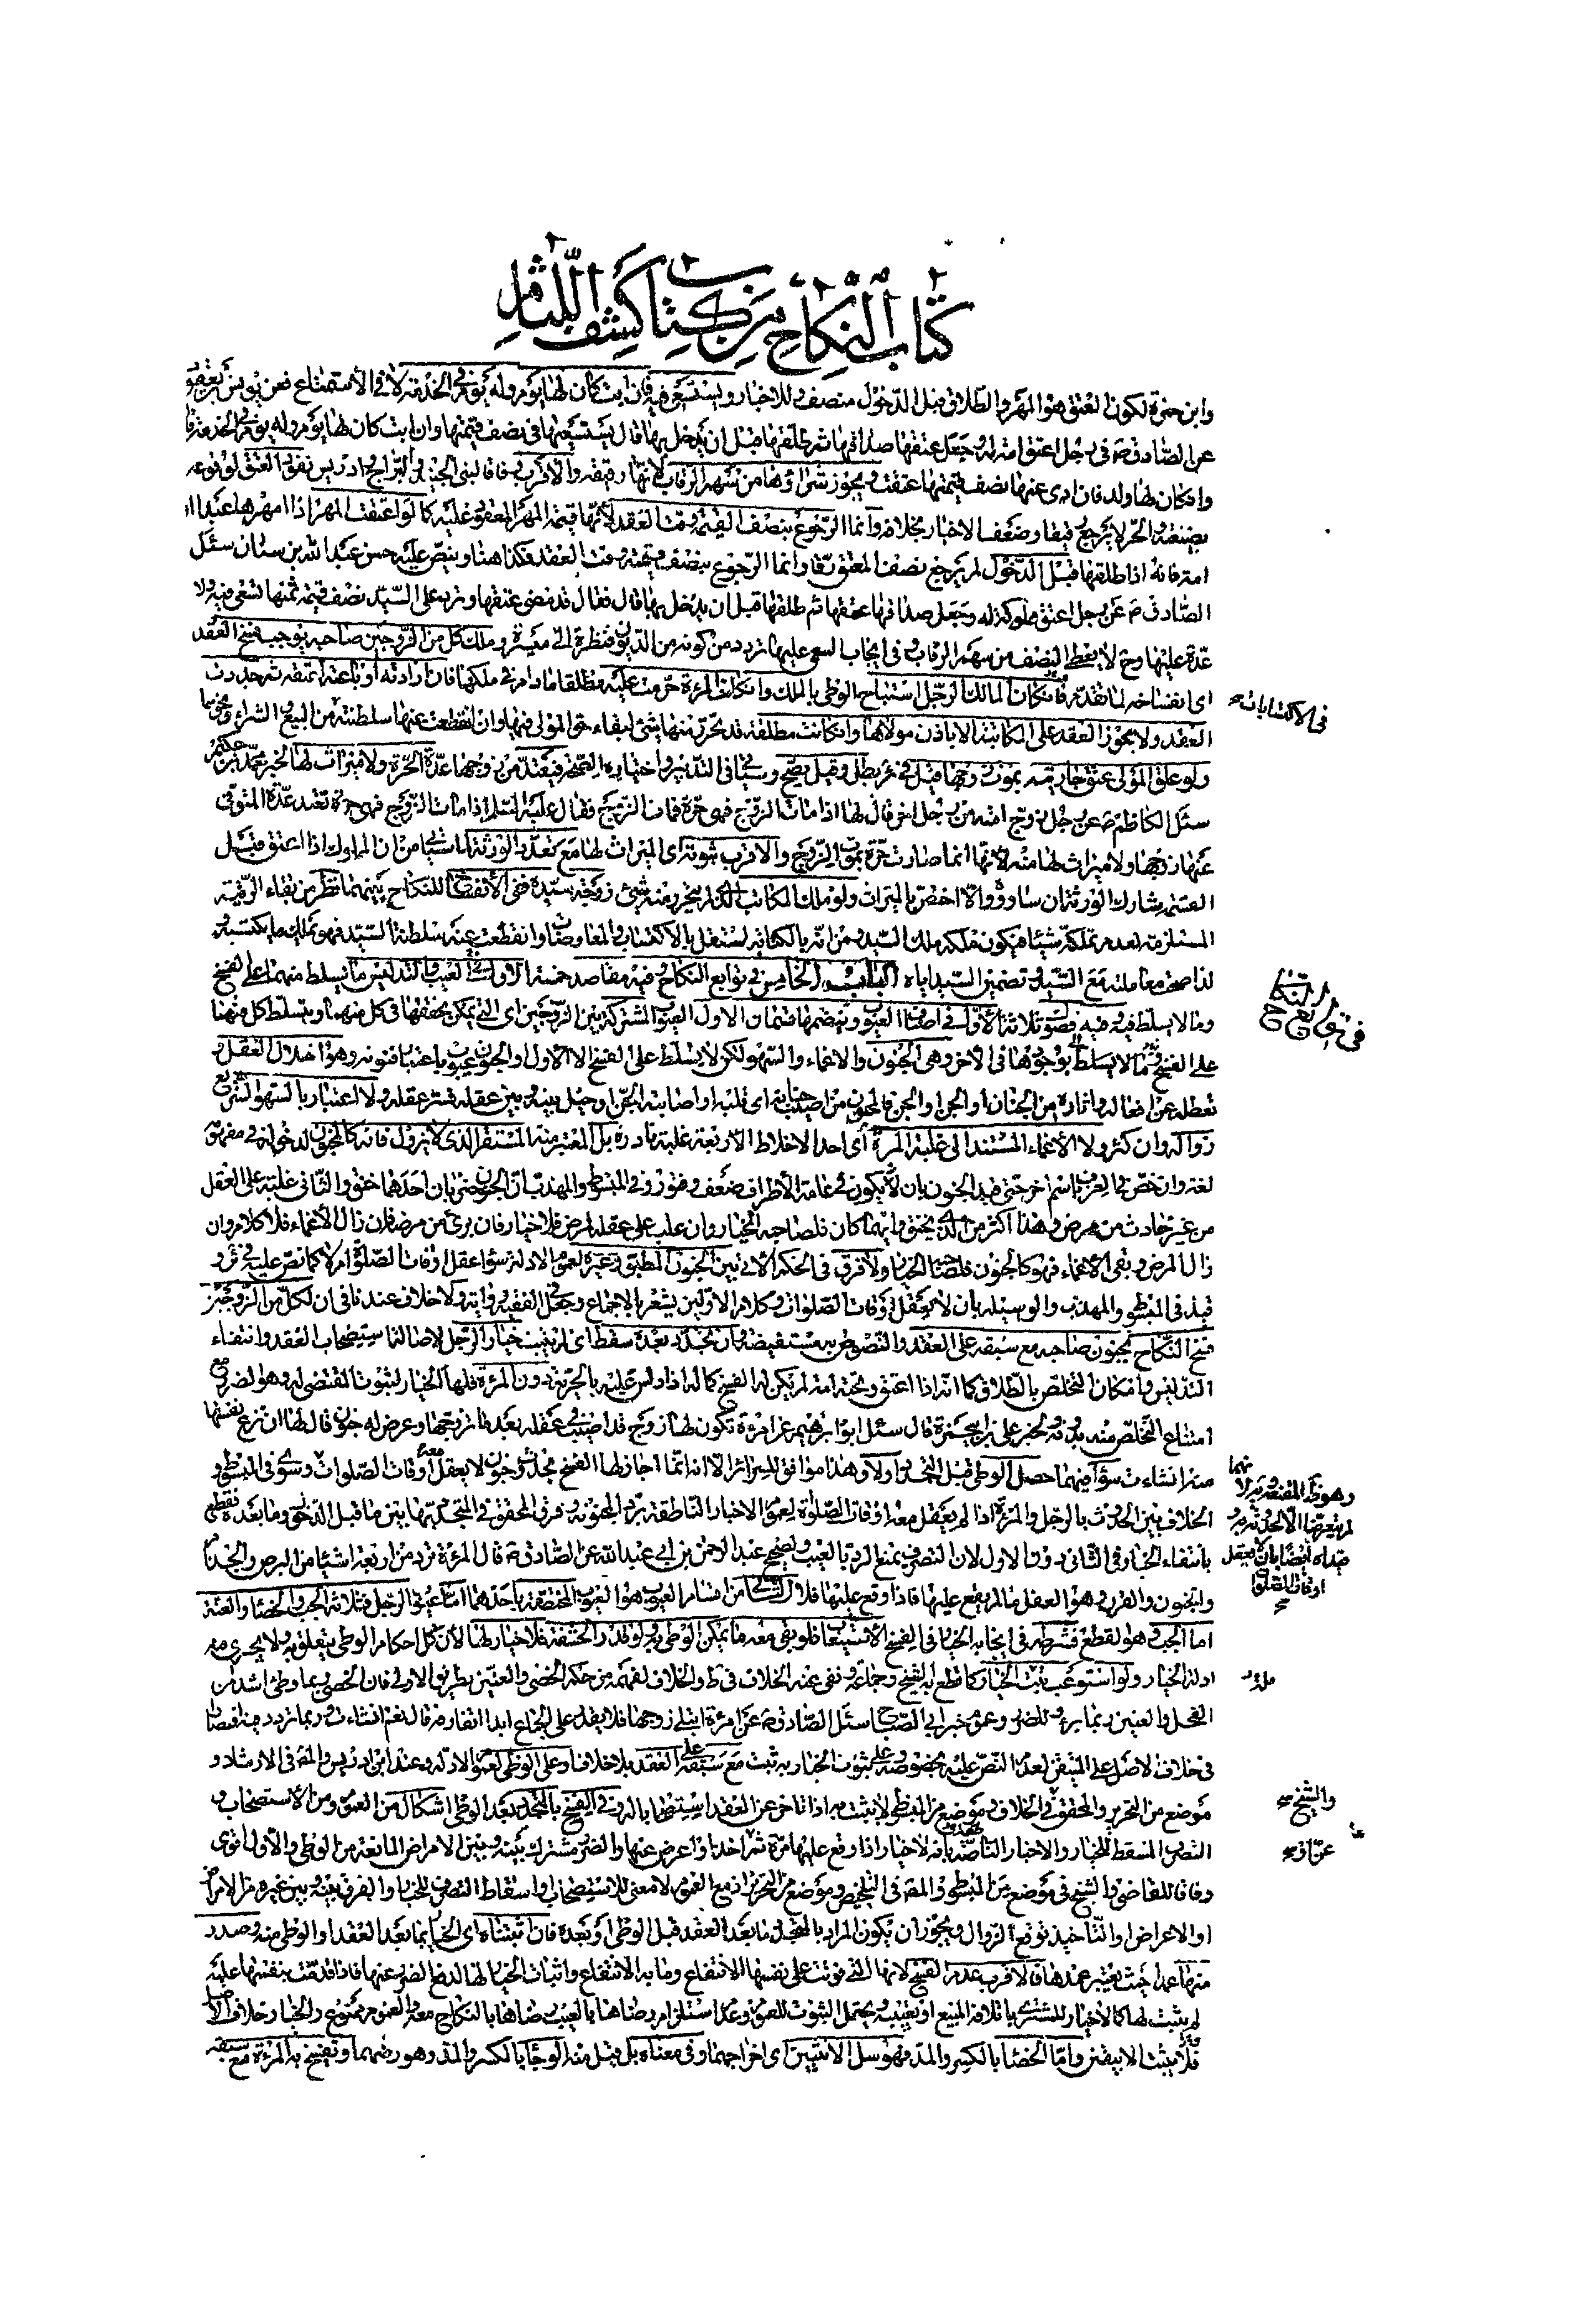 كتاب النكاح من كتاب كشف اللثام
وابن حمزة لكون العتق هو المهر والطلاق قبل الدخول منصف وللاخبار ويستسعى فيه فإن ابت كان لها يوم وله يوم في الخدمة لا في الاستمتاع فعن يونس بن يعقوب
عن الصادق ع في رجل اعتق امة له وجعل عتقها صداقها ثم طلقها قبل ان يدخل بها قال يستسعيها في نصف قيمتها وان ابت كان لها يوم وله يوم في الخدمة قال
وان كان لها ولد فان ادى عنها نصف قيمتها عتقت ويجوز شراؤها من سهم الرقاب لانها رقيقة والاقرب وفاقا لبني الجنيد والبراج وادريس نفوذ العتق لوقوعه
بصيغته والحر لا يرجع رقيقا وضعف الاخبار بخلافه وانما الرجوع بنصف القيمة وقت العقد لأنها قيمة المهر المعقود عليه كما لو اعتقت المهر اذا امهرها عبدا او
امة فانه اذا طلقها قبل الدخول لم يرجع نصف المعتق رقا وانما الرجوع بنصف قيمته وقت العقد فكذا هنا وينص عليه حسن عبد الله بن سنان سئل
الصادق ع عن رجل اعتق مملوكة له وجعل صداقها عتقها ثم طلقها قبل ان يدخل بها قال فقال قد مضى عتقها وترد على السيد نصف قيمة ثمنها تسعى فيه ولا
عدة عليها وح لا يعطى النصف من سهم الرقاب وفي ايجاب السعي عليها تردد من كونه من الديون فنظرة الى ميسرة وملك كل من الزوجين صاحبه يوجب فسخ العقد
اى انفساخه لما تقدم فان كان المالك الرجل استباح الوطي بالملك وان كانت المرءة حرمت عليه مطلقا ما دام في ملكها فان ارادته او باعته اعتقته ثم جددت
العقد ولا يجوز العقد على المكاتبة الا باذن مولاها وان كانت مطلقة قد تحرر منها شئ لبقاء حق المولى فيها وان انقطعت عنها سلطنته من البيع والشراء ونحوهما
في الاكتسابات صح
ولو علق المولى عتق جاريته بموت زوجها قيل في غر يبطل وقيل يصح وسيأتي في التدبير واختياره الصحة فيعتد من زوجها عدة الحرة ولا ميراث لها لخبر محمد بن حكيم
سئل الكاظم ع عن رجل زوج امته من رجل اخر قال لها اذا مات الزوج فهي حرة فمات الزوج فقال عليه السلم اذا مات الزوج فهي حرة تعتد عدة المتوفى
عنها زوجها ولا ميراث لها منه لانها انما صارت حرة بموت الزوج والاقرب ثبوته اى الميراث لها مع تعدد الورثة لما سيأتي من ان المملوك اذا اعتق قبل
القسمة شارك الورثة ان ساووه والا اختص بالميراث ولو ملك المكاتب الذي لم يتحرر منه شئ زوجة سيده ففي الانفساخ للنكاح بينهما نظر من بقاء الرقية
المستلزمة لعدم تملكه شيئا فيكون ملكه ملك السيد ومن انه بالكتابة استقل بالاكتساب والمعاوضات وانقطعت عنه سلطنة السيد فهو تملك ما يكتسبه
لذا صحت معاملته مع السيد وتضمين السيد اياه الباب الخامس في توابع النكاح وفيه مقاصد خمسة الاول في العيب والتدليس ما يسلط منهما على الفسخ
في توابع النكاح
وما لا يسلط فيه وفيه فصول ثلاثة الأول في اصناف العيوب وينضمها قسمان الاول العيوب المشتركة بين الزوجين اى التي يمكن تحققها في كل منهما ويتسلط كل منهما
على الفسخ بما لا يسلط بوجودها في الاخر وهي الجنون والاغماء والسهو لكن لا يسلط على الفسخ الا الأول والجنون عيوب باعتبار فنونه وهو اختلال العقل و
تعطله عن افعاله واثاره من الجنان او الجن فالمجنون من اصيب جنانه اى قلبه او اصابته الجن او حيل بينه وبين عقله فستر عقله ولا اعتبار بالسهو السريع
زواله وان كثر ولا الأغماء المستند الى غلبة المرة اى احد الاخلاط الأربعة غلبة نادرة بل المعتبر منه المستقر الذي لا يزول فانه كالمجنون لدخوله في مفهومه
لغة وان خص في العرف باسم اخر حتى قيد الجنون بان لا يكون في عامة الأطراف ضعف وفتور وفي المبسوط والمهذب ان الجنون ضربان احدهما خنق والثاني غلبة على العقل
من غير حادث من مرض وهذا اكثر من الذي يخنق وايهما كان فلصاحبه الخيار وان غلب على عقله لمرض فلا خيار فان برئ من مرضه فان زال الأغماء فلا كلام وان
زال المرض وبقي الأغماء فهو كالجنون فلصاحبه الخيار ولا فرق في الحكم الآتي بين الجنون المطبق وغيره لعموم الادلة سواء عقل اوقات الصلوة ام لا كما نص عليه في ئر و
قيد في المبسوط والمهذب والوسيلة بان لا يعقل اوقات الصلوات وكلام الاولين يشعر بالاجماع وجعل في الفقيه رواية ولا خلاف عندنا في ان لكل من الزوجين
فسخ النكاح بجنون صاحبه مع سبقه على العقد والنصوص به مستفيضة وان تجدد بعده سقط اى لم يثبت خيار الرجل لاصالته استصحاب العقد وانتفاء
التدليس وامكان التخلص بالطلاق كما انه اذا اعتق وتحته امة لم يكن له الفسخ كما له اذا دلس عليه بالحرية دون المرءة فلها الخيار لثبوت المقتضى له وهو الضرر مع
امتناع التخلص منه بدونه لخبر علي بن ابي حمزة قال سئل ابو ابراهيم عن امرءة تكون لها زوج قد اصيب في عقله بعد ما تزوجها وعرض له جنون قال لها ان تنزع نفسها
منه ان شاءت سواء منهما حصل الوطي قبل التجدد اولا وهذا موافق للسرائر الا انه انما اجاز لها الفسخ بجدث جنون لا يعقل معه اوقات الصلوات وسوى في المبسوط و
وهو ظ المقنعة
اوقات الصلوات
صح
الخلاف بين الحدوث بالرجل والمرءة اذا لم يعقل معه اوقات الصلوة لعموم الاخبار الناطقة برد المجنونة وفرق المحقق في المتجدد بها بين ما قبل الدخول وما بعده فقطع
بانتفاء الخيار في الثاني دون الاول لان التصرف يمنع الرد بالعيب ولصحيح عبد الرحمن بن ابي عبد الله عن الصادق ع قال المرءة ترد من اربعة اشياء من البرص والجذام
والجنون والقرن وهو العفل ما لم يقع عليها فاذا وقع عليها فلا الثاني من اقسام العيوب هو العيوب المختصة باحدهما اما عيوب الرجل فثلاثة الجب والخصاء والعنة
اما الجب وهو القطع فشرطه في ايجابه الخيار في الفسخ الاستيعاب فلو بقي معه ما يمكن الوطي به ولو قدر الحشفة فلا خيار لها لأن كل احكام الوطي يتعلق به ولا يجرى معه
ادلة الخيار ولو استوعب ثبت الخيار كما قطع به الشيخ وجماعة ونفى عنه الخلاف في ط والخلاف لفهمه من حكم الخصي والعنين بطريق الاولى فان الخصي ربما وطئ اشد من
الفحل والعنين ربما برئ وللضرر وعموم خبر ابي الصباح سئل الصادق ع عن امرءة ابتلى زوجها فلا يقدر على الجماع ابدا اتفارقه قال نعم ان شاءت وربما تردد فيه اقتصارا
في خلاف الاصل على المتيقن لعدم النص عليه بخصوصه وعلى ثبوت الخيار به ثبت مع سبقه على العقد بلا خلاف وعلى الوطي لعموم الادلة وعند ابن ادريس والمص في الارشاد و
موضع من التحرير والمحقق والشيخ في الخلاف وموضع من المبسوط لا يثبت به اذا تاخر عن العقد استصحابا له وفي الفسخ بالمتجدد بعد الوطي اشكال من العموم ومن الاستصحاب و
والشيخ صح
النصرف المسقط للخيار والاخبار الناصة بانه لا خيار اذا وقع عليها مرة ثم اخذ او اعرض عنها والضرر مشترك بينه وبين الامراض المانعة من الوطي والأول اقوى
وفاقا للقاضي والشيخ في موضع من المبسوط والمص في التلخيص وموضع من التحرير اذ مع العموم لا معنى للاستصحاب واسقاط التصرف للخيار والفرق بينه وبين غيره من الامراض
او الاعراض او التأخيذ توقع الزوال ويجوز ان يكون المراد بالمتجدد ما بعد العقد قبل الوطي او بعده فان اثبتناه اى الخيار بما بعد العقد او الوطي منه وصدر
منها عمدا حيث يعتبر عمدها فالأقرب عدم الفسخ لانها التي فوتت على نفسها الانتفاع وما به الانتفاع واثبات الخيار لها لدفع الضرر عنها فاذا قدمت بنفسها عليه
لم يثبت لها كما لا خيار للمشتري باتلافه المبيع او تعييبه ويحتمل الثبوت للعموم وعدم استلزام رضاها بالعيب رضاها بالنكاح معه والعموم ممنوع والخيار خلاف الاصل
فلا يثبت الا بيقين واما الخصاء بالكسر والمد فهو سل الانثيين اى اخراجهما وفي معناه بل قيل منه الوجاء بالكسر والمد وهو رضهما وتفسخ به المرءة مع سبقه